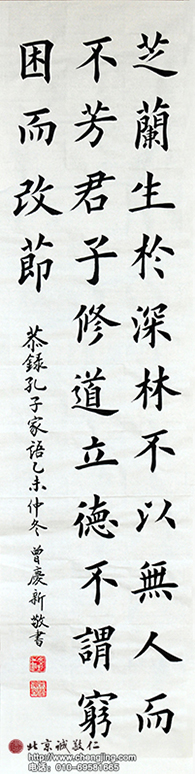 芝蘭生於深林不以無人而
不芳君子修道立德不謂窮
困而改節
恭錄孔子家語乙未仲冬曾慶新敬書
北京诚敬仁
www.chengjing.com
电话：010-69581665